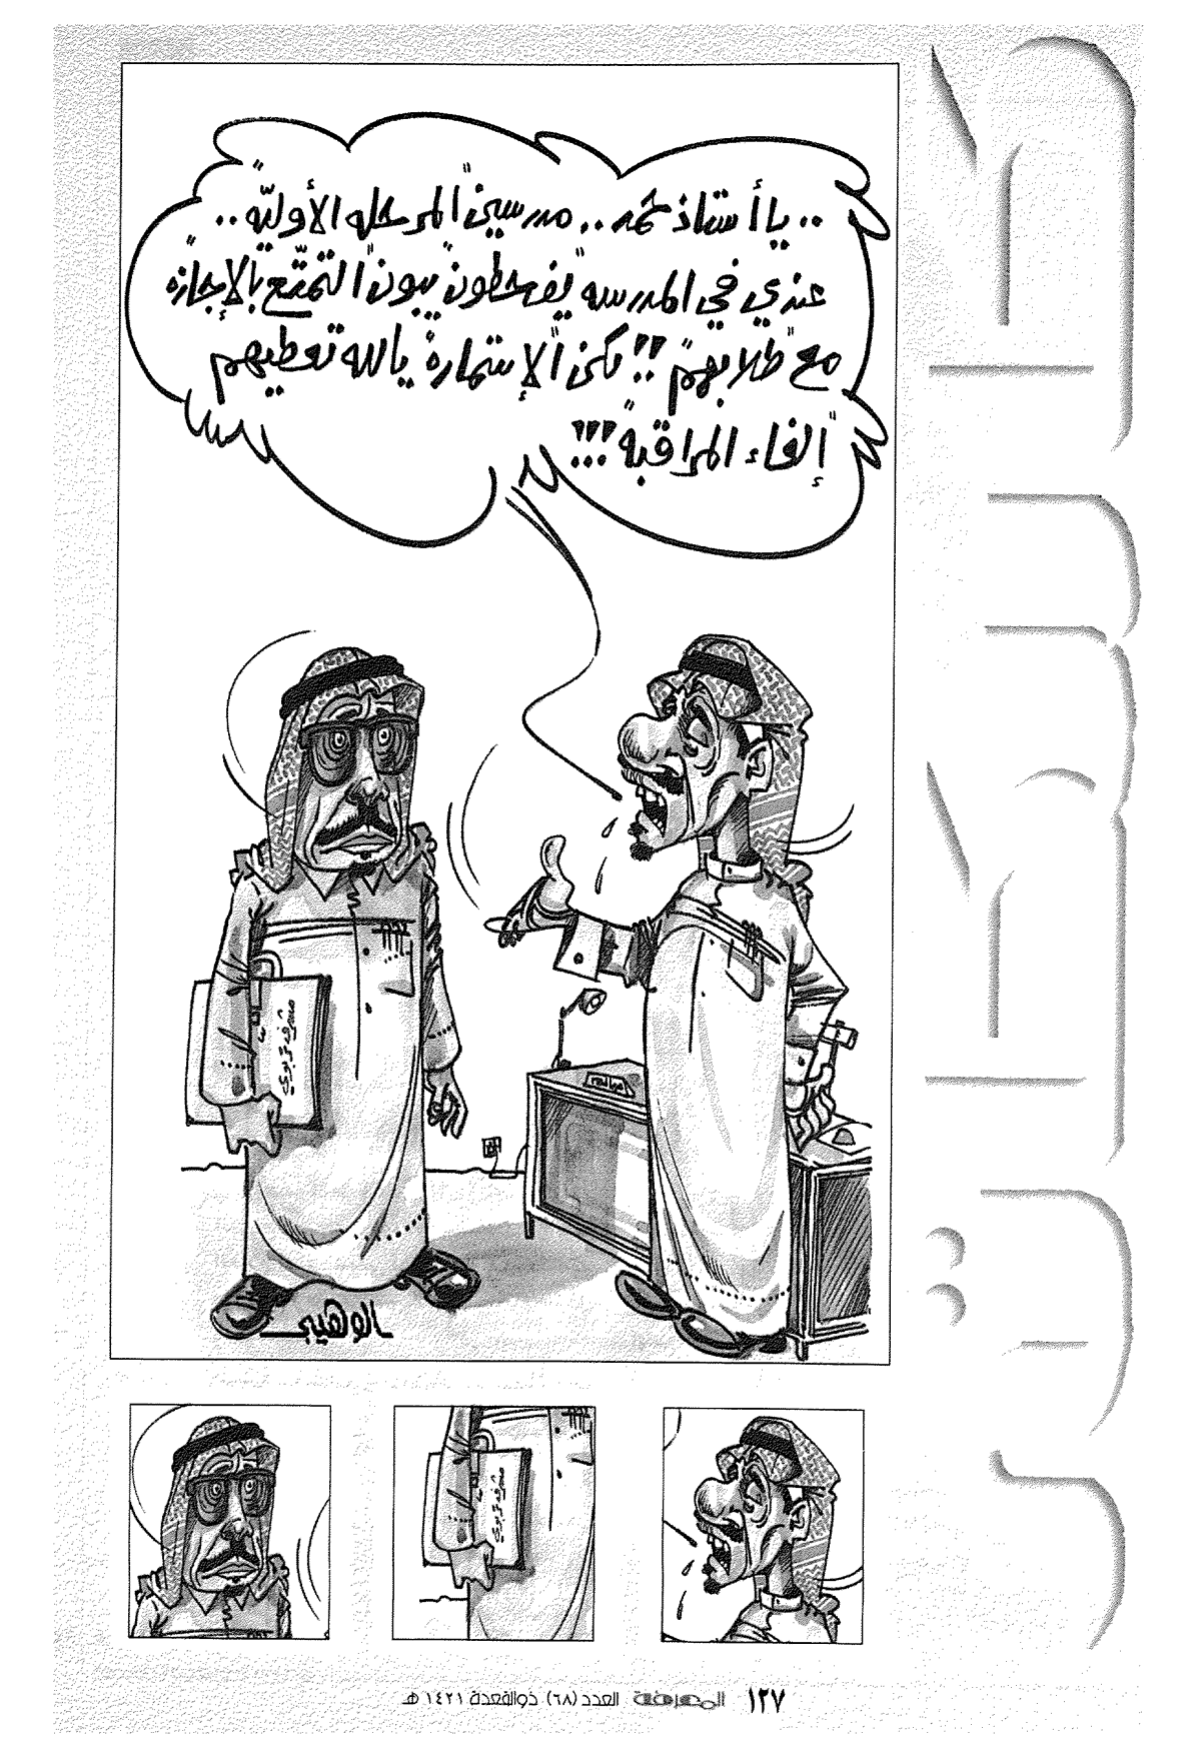 .. يا أستاذ حمد .. مدرسين "المرحله الأوليّه" ..
عندي في المدرسه "يفحطون" يبون "التمتّع بالإجازه"
مع "طلابهم" !! يمكن "الإستمارة" يالله تعطيهم
"إلغاء المراقبة" !!!
مشرف تربوي
الوهيبي
مشرف تربوي
١٢٧ المعرفة العدد (٦٨) ذوالقعدة ١٤٢١ هـ